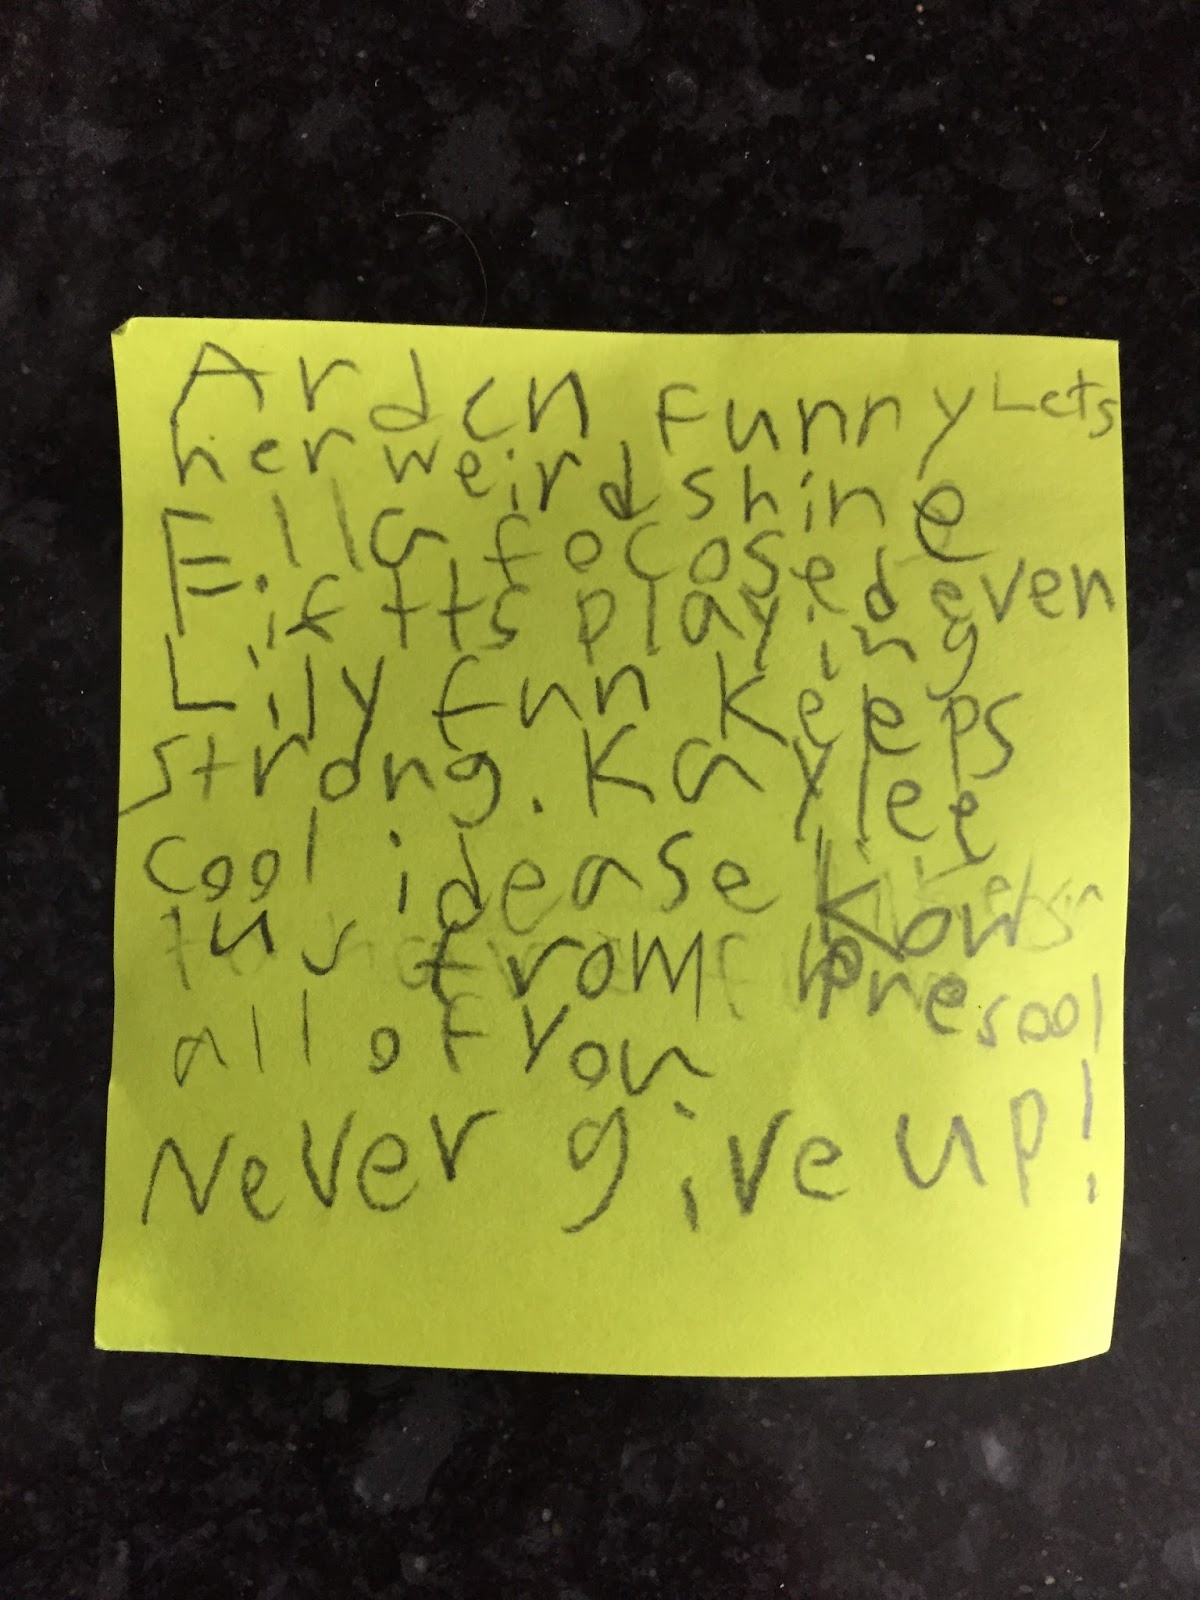 Arden Funny Lets
her weird shine
Ella focosed even
if tts playing
Lily fun Keeps
strong. Kaylee
cool idease Kow
fus from here sool
all of you
Never give up!